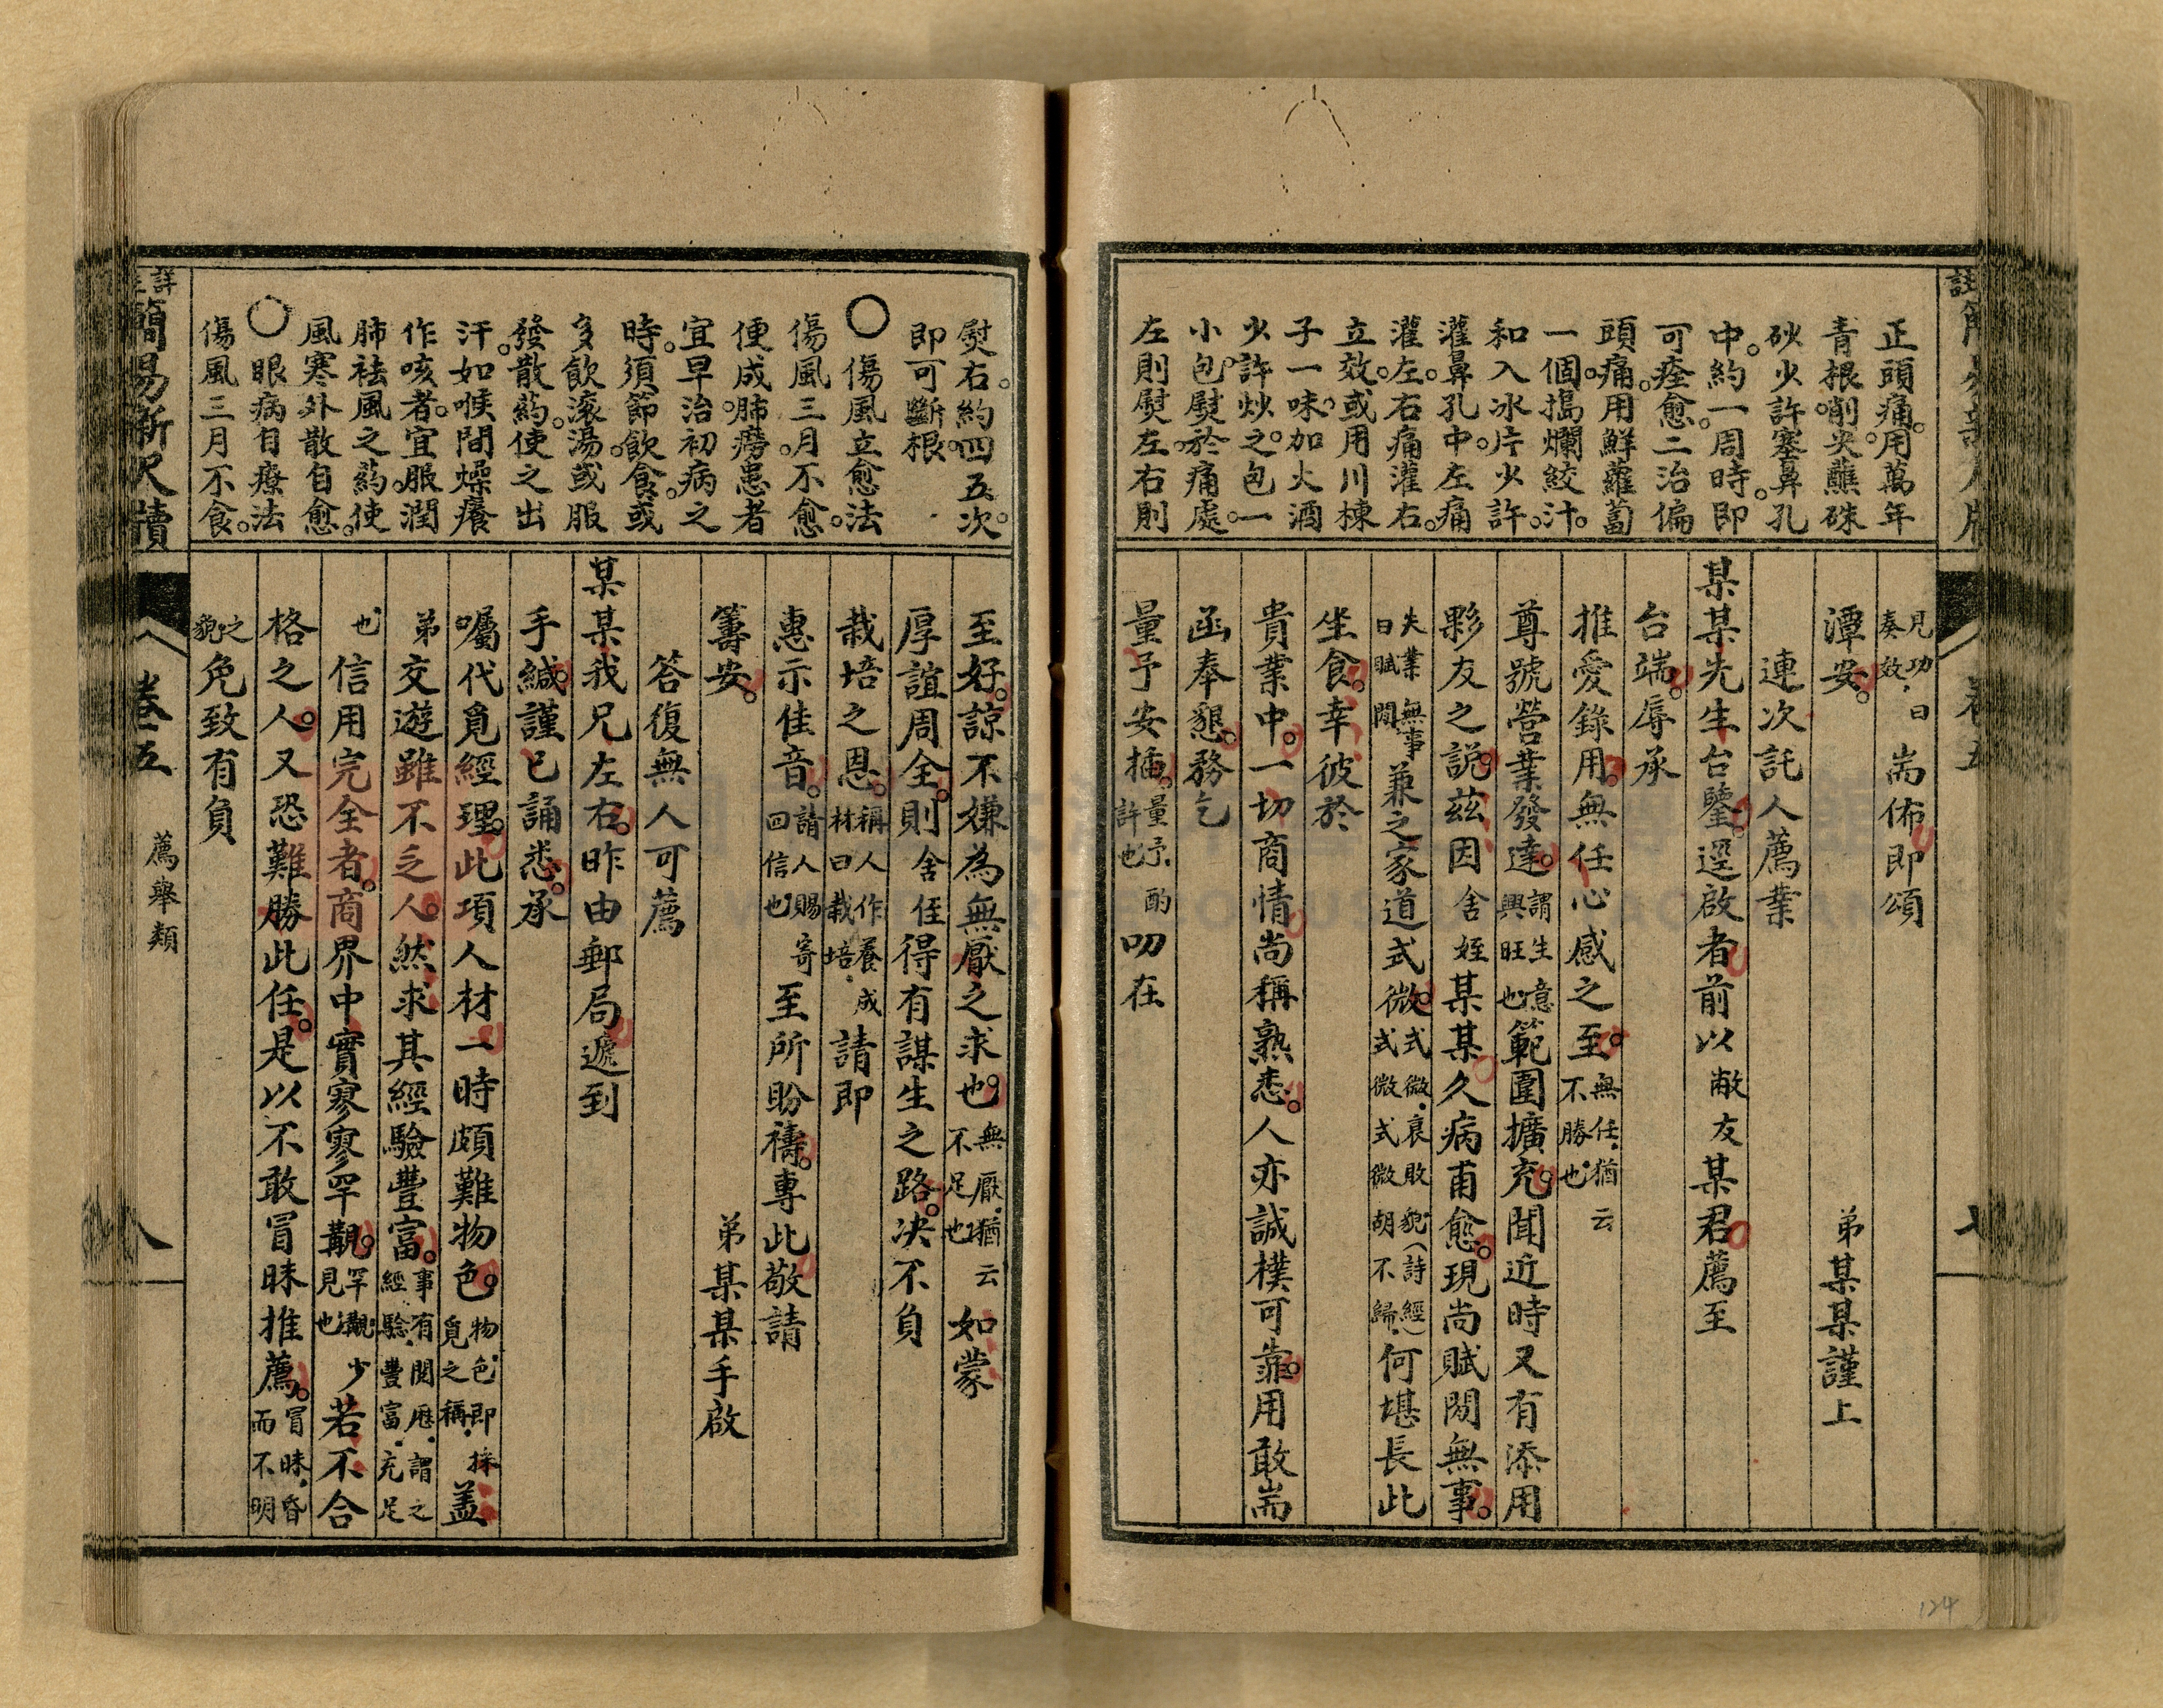 正頭痛。用萬年
青根。削尖蘸硃
砂少許塞鼻孔
中。約一周時。即
可痊愈。二治偏
頭痛。用鮮蘿蔔
一個。搗爛絞汁。
和入冰片少許。
灌鼻孔中。左痛
灌左。右痛灌右。
立效。或用川楝
子一味。加火酒
少許。炒之。包一
小包。熨於痛處。
左則熨左。右則
見功曰
奏效、 耑佈即頌
潭安。 弟某某謹上
連次託人薦業
某某先生台鑒。逕啟者。前以敝友某君薦至
台端。辱承
推愛錄用。無任心感之至。無任、猶云
不勝也
尊號營業發達。謂生意
興旺也範圍擴充。聞近時又有添用
夥友之説。茲因舍姪某某久病甫愈。現尚賦閒無事。
失業無事
曰賦閒 兼之家道式微。式微、衰敗貌、(詩經)
式微式微胡不歸、何堪長此
坐食。幸彼於
貴業中。一切商情尚稱熟悉。人亦誠樸可靠。用敢耑
函奉懇。務乞
量予安插。量予、酌
許也 叨在
詳註簡易新尺牘
卷五
七
熨右。約四五次。
即可斷根。
〇傷風立愈法
傷風三月不愈。
便成肺癆。患者
宜早治初病之
時。須節飲食。或
多飲滾湯。或服
發散葯。使之出
汗。如喉間燥癢
作咳者。宜服潤
肺祛風之葯。使
風寒外散自愈。
〇眼病自療法
傷風三月不食。
至好。諒不嫌為無厭之求也。無厭、猶云
不足也 如蒙
厚誼周全。則舍侄得有謀生之路。决不負
栽培之恩。稱人作養成
材曰栽培、 請即
惠示佳音。請人賜寄
回信也 至所盼禱。專此敬請
籌安。 弟某某手啟
答復無人可薦
某某我兄左右。昨由郵局遞到
手緘。謹已誦悉。承
囑代覓經理。此項人材一時頗難物色。物色、即採
覓之稱、蓋
弟交遊雖不乏人。然求其經驗豐富。事有閱歷、謂之
經驗、豐富、充足
也 信用完全者。商界中實寥寥罕覯。罕覯、少
見也 若不合
格之人。又恐難勝此任。是以不敢冒昧推薦。冒昧、昏
而不明
之
貌、免致有負
詳註簡易新尺牘
卷五
薦舉類
八
124